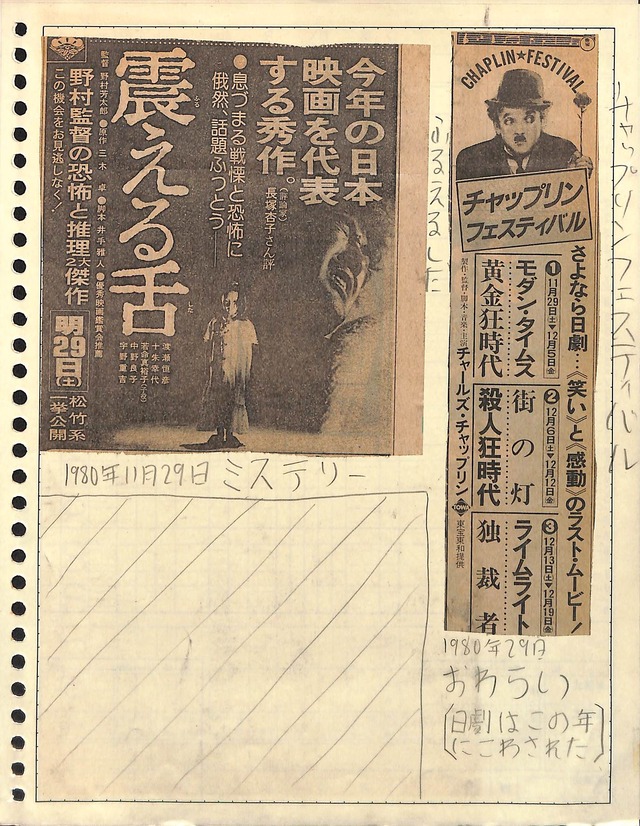 今年の日本
映画を代表
する秀作。
(評論家)
長塚杏子さん評
●息づまる戦慄と恐怖に
俄然、話題ふっとう──
震える舌
ふる
した
監督 野村芳太郎●原作 三木 卓●脚本 井手雅人●優秀映画鑑賞会推薦
野村監督の恐怖と推理の2大傑作
この機会をお見逃しなく!
渡瀬恒彦
十朱幸代
若命真裕子(子役)
中野良子
宇野重吉
明29日(土)
松竹系
一挙公開
1980年11月29日 ミステリー
ふるえるした
CHAPLIN★FESTIVAL
チャップリン
フェスティバル
さよなら日劇…《笑い》と《感動》のラスト・ムービー!
①11月29日(土)▼12月5日(金)
モダン・タイムス
黄金狂時代
②12月6日(土)▼12月12日(金)
街の灯
殺人狂時代
③12月13日(土)▼12月19日(金)
ライムライト
独裁者
製作・監督・脚本・音楽・主演 チャールズ・チャップリン
TOWA
東宝東和提供
チャップリンフェスティバル
1980年29日
おわらい
(日劇はこの年
にこわされた)